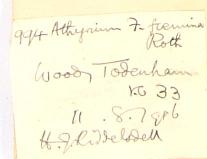 994 Athyrium F. foemina
Roth
Woods, Todenham
VC 33
11. 8. 
H. J. Riddelsdell